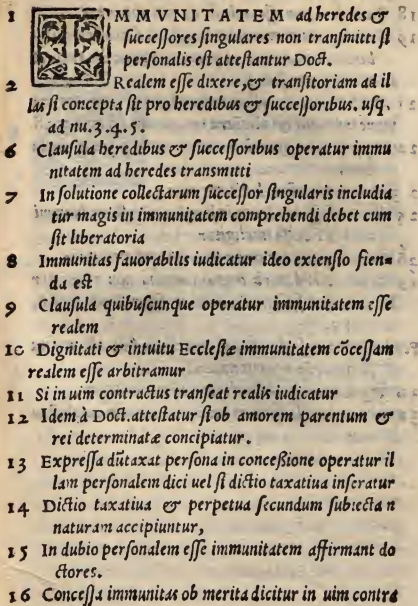 1 IMMVNITATEM ad heredes &
ſucceſſores ſingulares non tranſmitti ſi
perſonalis eſt atteſtantur Doct.
2 Realem eſſe dixere, & tranſitoriam ad il
las ſi concepta ſit pro heredibus & ſucceſſoribus. uſq,
ad nu. 3. 4. 5.
6 Clauſula heredibus & ſucceſſoribus operatur immu
nitatem ad heredes tranſmitti
7 In ſolutione collectarum ſucceſſor ſingularis includia
tur magis in immunitatem comprehendi debet cum
ſit liberatoria
8 Immunitas fauorabilis iudicatur ideo extenſio fien=
da eſt
9 Clauſula quibuſcunque operatur immunitatem eſſe
realem
10 Dignitati & intuitu Eccleſiæ immunitatem cōceſſam
realem eſſe arbitramur
11 Si in uim contractus tranſeat realis iudicatur
12 Idem à Doct. atteſtatur ſi ob amorem parentum &
rei determinatæ concipiatur.
13 Expreſſa dūtaxat perſona in conceßione operatur il
lam perſonalem dici uel ſi dictio taxatiua inſeratur
14 Dictio taxatiua & perpetua ſecundum ſubiecta n
naturam accipiuntur,
15 In dubio perſonalem eſſe immunitatem affirmant do
ctores.
16 Conceſſa immunitas ob merita dicitur in uim contra